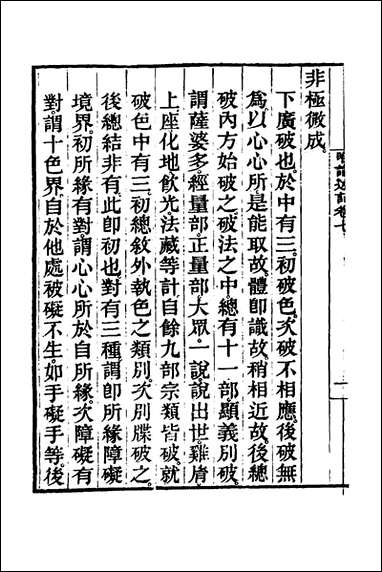 非極微成。
下廣破也。於中有三。初破色。次破不相應。後破無
爲。以心心所是能取故。體卽識故。稍相近故。後總
破內方始破之。破法之中總有十一部。顯義別破。
謂薩婆多。經量部。正量部。大眾。一說。說出世。雞胤。
上座。化地。飲光。法藏等計。自餘九部宗類皆破。就
破色中有三。初總敘外執色之類別。次別牒破之。
後總結非有。此卽初也。對有三種。謂卽所緣障礙
境界。初所緣有對。謂心心所於自所緣。次障礙有
對。謂十色界自於他處被礙不生。如手礙手等。後